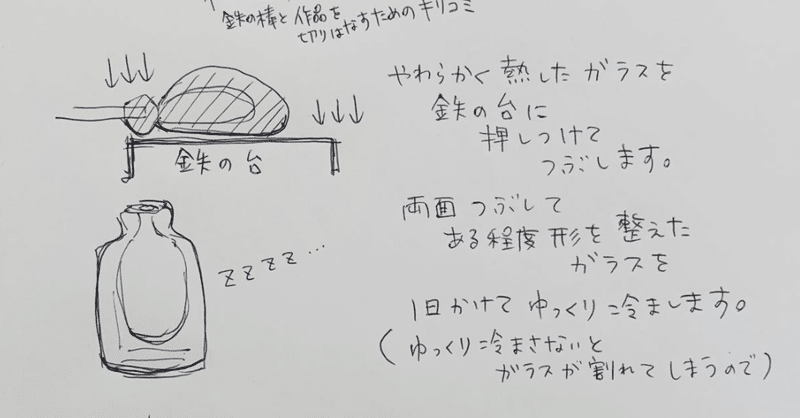 鉄の棒と作品を
切りはなすためのキリコミ
やわらかく熱したガラスを
鉄の台に
押しつけて
つぶします。
鉄の台
両面つぶして
ある程度形を整えた
ガラスを
zzzz...
1日かけてゆっくり冷まします。
(ゆっくり冷まさないと
ガラスが割れてしまうので)